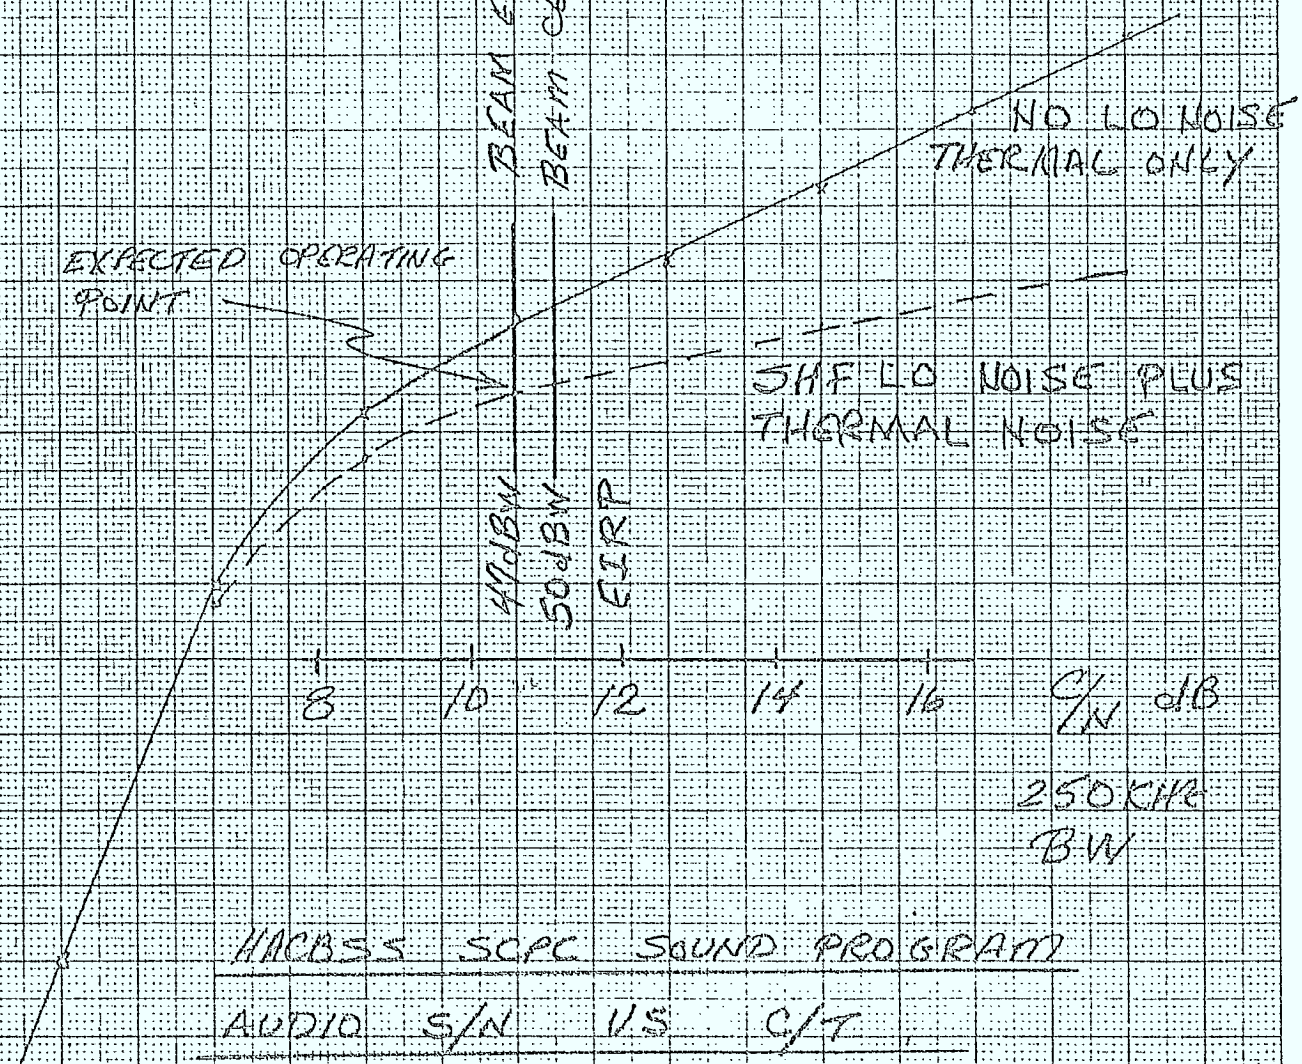 BEAM
BEAM
NO LO NOISE
THERMAL ONLY
EXPECTED OPERATING
POINT
SHF LO NOISE PLUS
THERMAL NOISE
47dBW
50dBW
EIRP
8 10 12 14 16 C/N dB
250KHz
BW
HACBSS SCPC SOUND PROGRAM
AUDIO S/N VS C/T